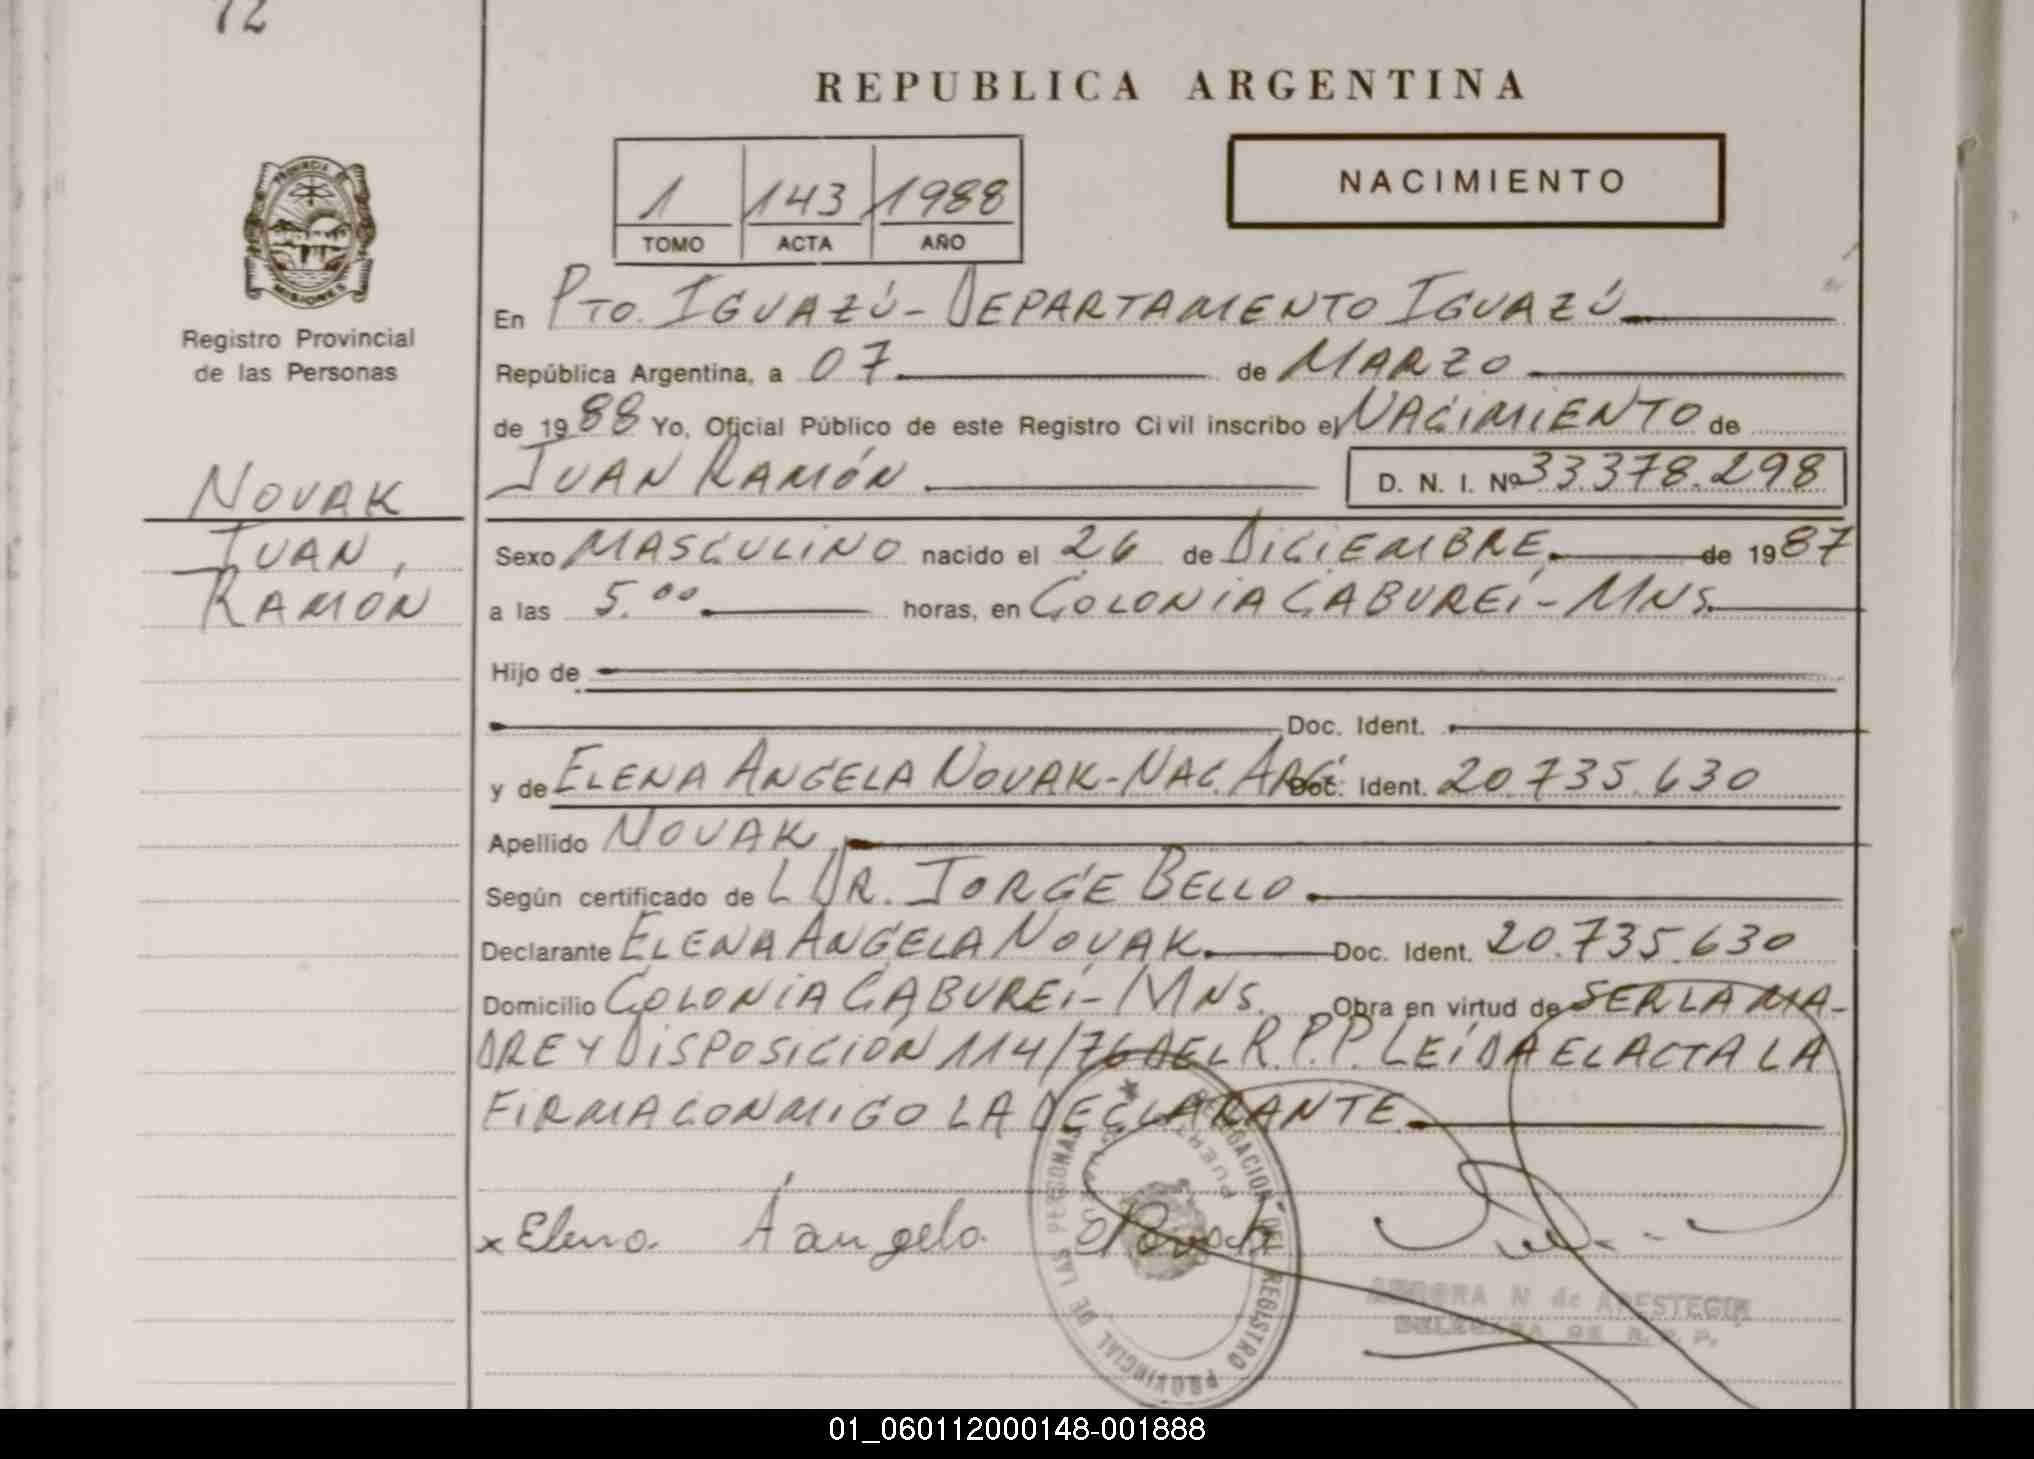 72
REPUBLICA ARGENTINA
NACIMIENTO
1 143 1988
TOMO ACTA AÑO
PROVINCIA DE
MISIONES
Registro Provincial
de las Personas
En PTO. IGUAZÚ - DEPARTAMENTO IGUAZÚ
República Argentina, a 07 de MARZO
de 1988 Yo, Oficial Público de este Registro Civil inscribo el NACIMIENTO de
JUAN RAMÓN D. N. I. Nº 33.378.298
NOVAK
JUAN,
RAMÓN
Sexo MASCULINO nacido el 26 de DICIEMBRE de 1987
a las 5.00 horas, en COLONIA CABUREÍ - MNS.
Hijo de
Doc. Ident.
y de ELENA ANGELA NOVAK - NAC. ARG. Doc. Ident. 20.735.630
Apellido NOVAK
Según certificado de L DR. JORGE BELLO.
Declarante ELENA ANGELA NOVAK. Doc. Ident. 20.735.630
Domicilio COLONIA CABUREÍ - MNS. Obra en virtud de SER LA MA-
DRE Y DISPOSICIÓN 114/76 DEL R.P.P. LEÍDA EL ACTA LA
FIRMA CONMIGO LA DECLARANTE.
x Elena Aangela Novak
DELEGACION DEL REGISTRO PROVINCIAL DE LAS PERSONAS
PUERTO IGUAZU
N de APESTEGUI
DELEGADA DE R. P. P.
01_060112000148-001888